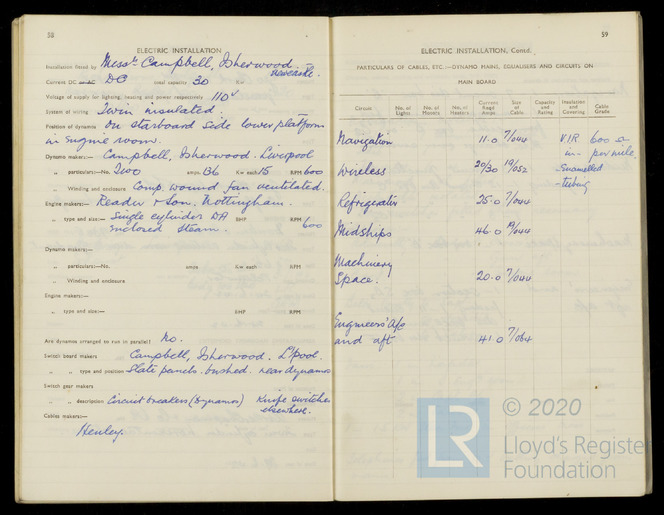 58
ELECTRIC INSTALLATION
Installation fitted by Messrs Campbell, Isherwood. Newcastle.
Current DC or AC DC total capacity 30 Kw
Voltage of supply for lighting, heating and power respectively 110v
System of wiring Twin insulated.
Position of dynamos On starboard side lower platform
in Engine room.
Dynamo makers:— Campbell, Isherwood. Liverpool
„ particulars:—No. Two amps 136 Kw each 15 RPM 600
„ Winding and enclosure Comp. wound fan ventilated.
Engine makers:— Reader & Son. Nottingham.
„ type and size:— Single cylinder DA BHP RPM 600
enclosed steam.
Dynamo makers:—
„ particulars:—No. amps Kw each RPM
„ Winding and enclosure
Engine makers:—
„ type and size:— BHP RPM
Are dynamos arranged to run in parallel? No.
Switch board makers Campbell, Isherwood. L'pool.
„ „ type and position Slate panels. bushed. near dynamos
Switch gear makers
„ „ description Circuit breakers (Dynamos) Knife switches
elsewhere.
Cables makers:—
Henley.
59
ELECTRIC INSTALLATION, Contd.
PARTICULARS OF CABLES, ETC.—DYNAMO MAINS, EQUALISERS AND CIRCUITS ON
MAIN BOARD
Circuit No. of Lights No. of Motors No. of Heaters Current Reqd Amps. Size of Cable Capacity and Rating Insulation and Covering Cable Grade
Navigation 11.0 7/044 VIR 600 Ω
in per mile.
Wireless 20/30 19/052 Enamelled
tubing
Refrigerator 25.0 7/044
Midships 46.0 19/044
Machinery
Space. 20.0 7/044
Engineers' A/c
and aft 41.0 7/064
LR © 2020
Lloyd's Register
Foundation